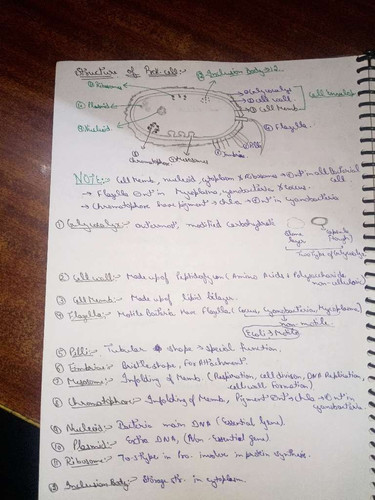 Structure of Prok. cell:-
⑪ Ribosomes
⑫ Inclusion Body
⑩ Plasmid
① Glycocalyx
② cell wall
③ Cell Memb.
Cell Envelope
⑨ Nucleoid
④ Flagella.
⑤ Pilli
⑥ Fimbriae
⑧ chromatophore
⑦ Mesosomes
NOTE:- Cell Memb, nucleoid, cytoplasm & Ribosome in all Bacterial cell.
→ Flagella in Mycoplasma, cyanobacteria & coccus.
→ Chromatophore have pigment → chl a → in cyanobacteria
① Glycocalyx:- outermost, modified carbohydrate
slime layer
capsule (tough)
Two Type of Glycocalyx
② Cell wall:- Made up of Peptidoglycan (Amino Acids + Polysaccharide non-cellulosic)
③ Cell Memb:- Made up of lipid bilayer.
④ Flagella:- Motile Bacteria Have Flagella (Coccus, Cyanobacteria, Mycoplasma)
non-motile
Ecoli → Motile
⑤ Pilli:- Tubular shape → special function.
⑥ Fimbriae:- Bristle shape, For Attachment.
⑦ Mesosome:- Infolding of Memb (Respiration, cell division, DNA Replication, cell wall formation)
⑧ Chromatophore:- Infolding of Memb, Pigment chl a in cyanobacteria.
⑨ Nucleoid:- Bacteria main DNA (Essential Gene).
⑩ Plasmid:- Extra DNA, (Non-essential gene).
⑪ Ribosome:- 70s type in Pro. involve in protein synthesis.
⑫ Inclusion Body:- Storage str. in cytoplasm.